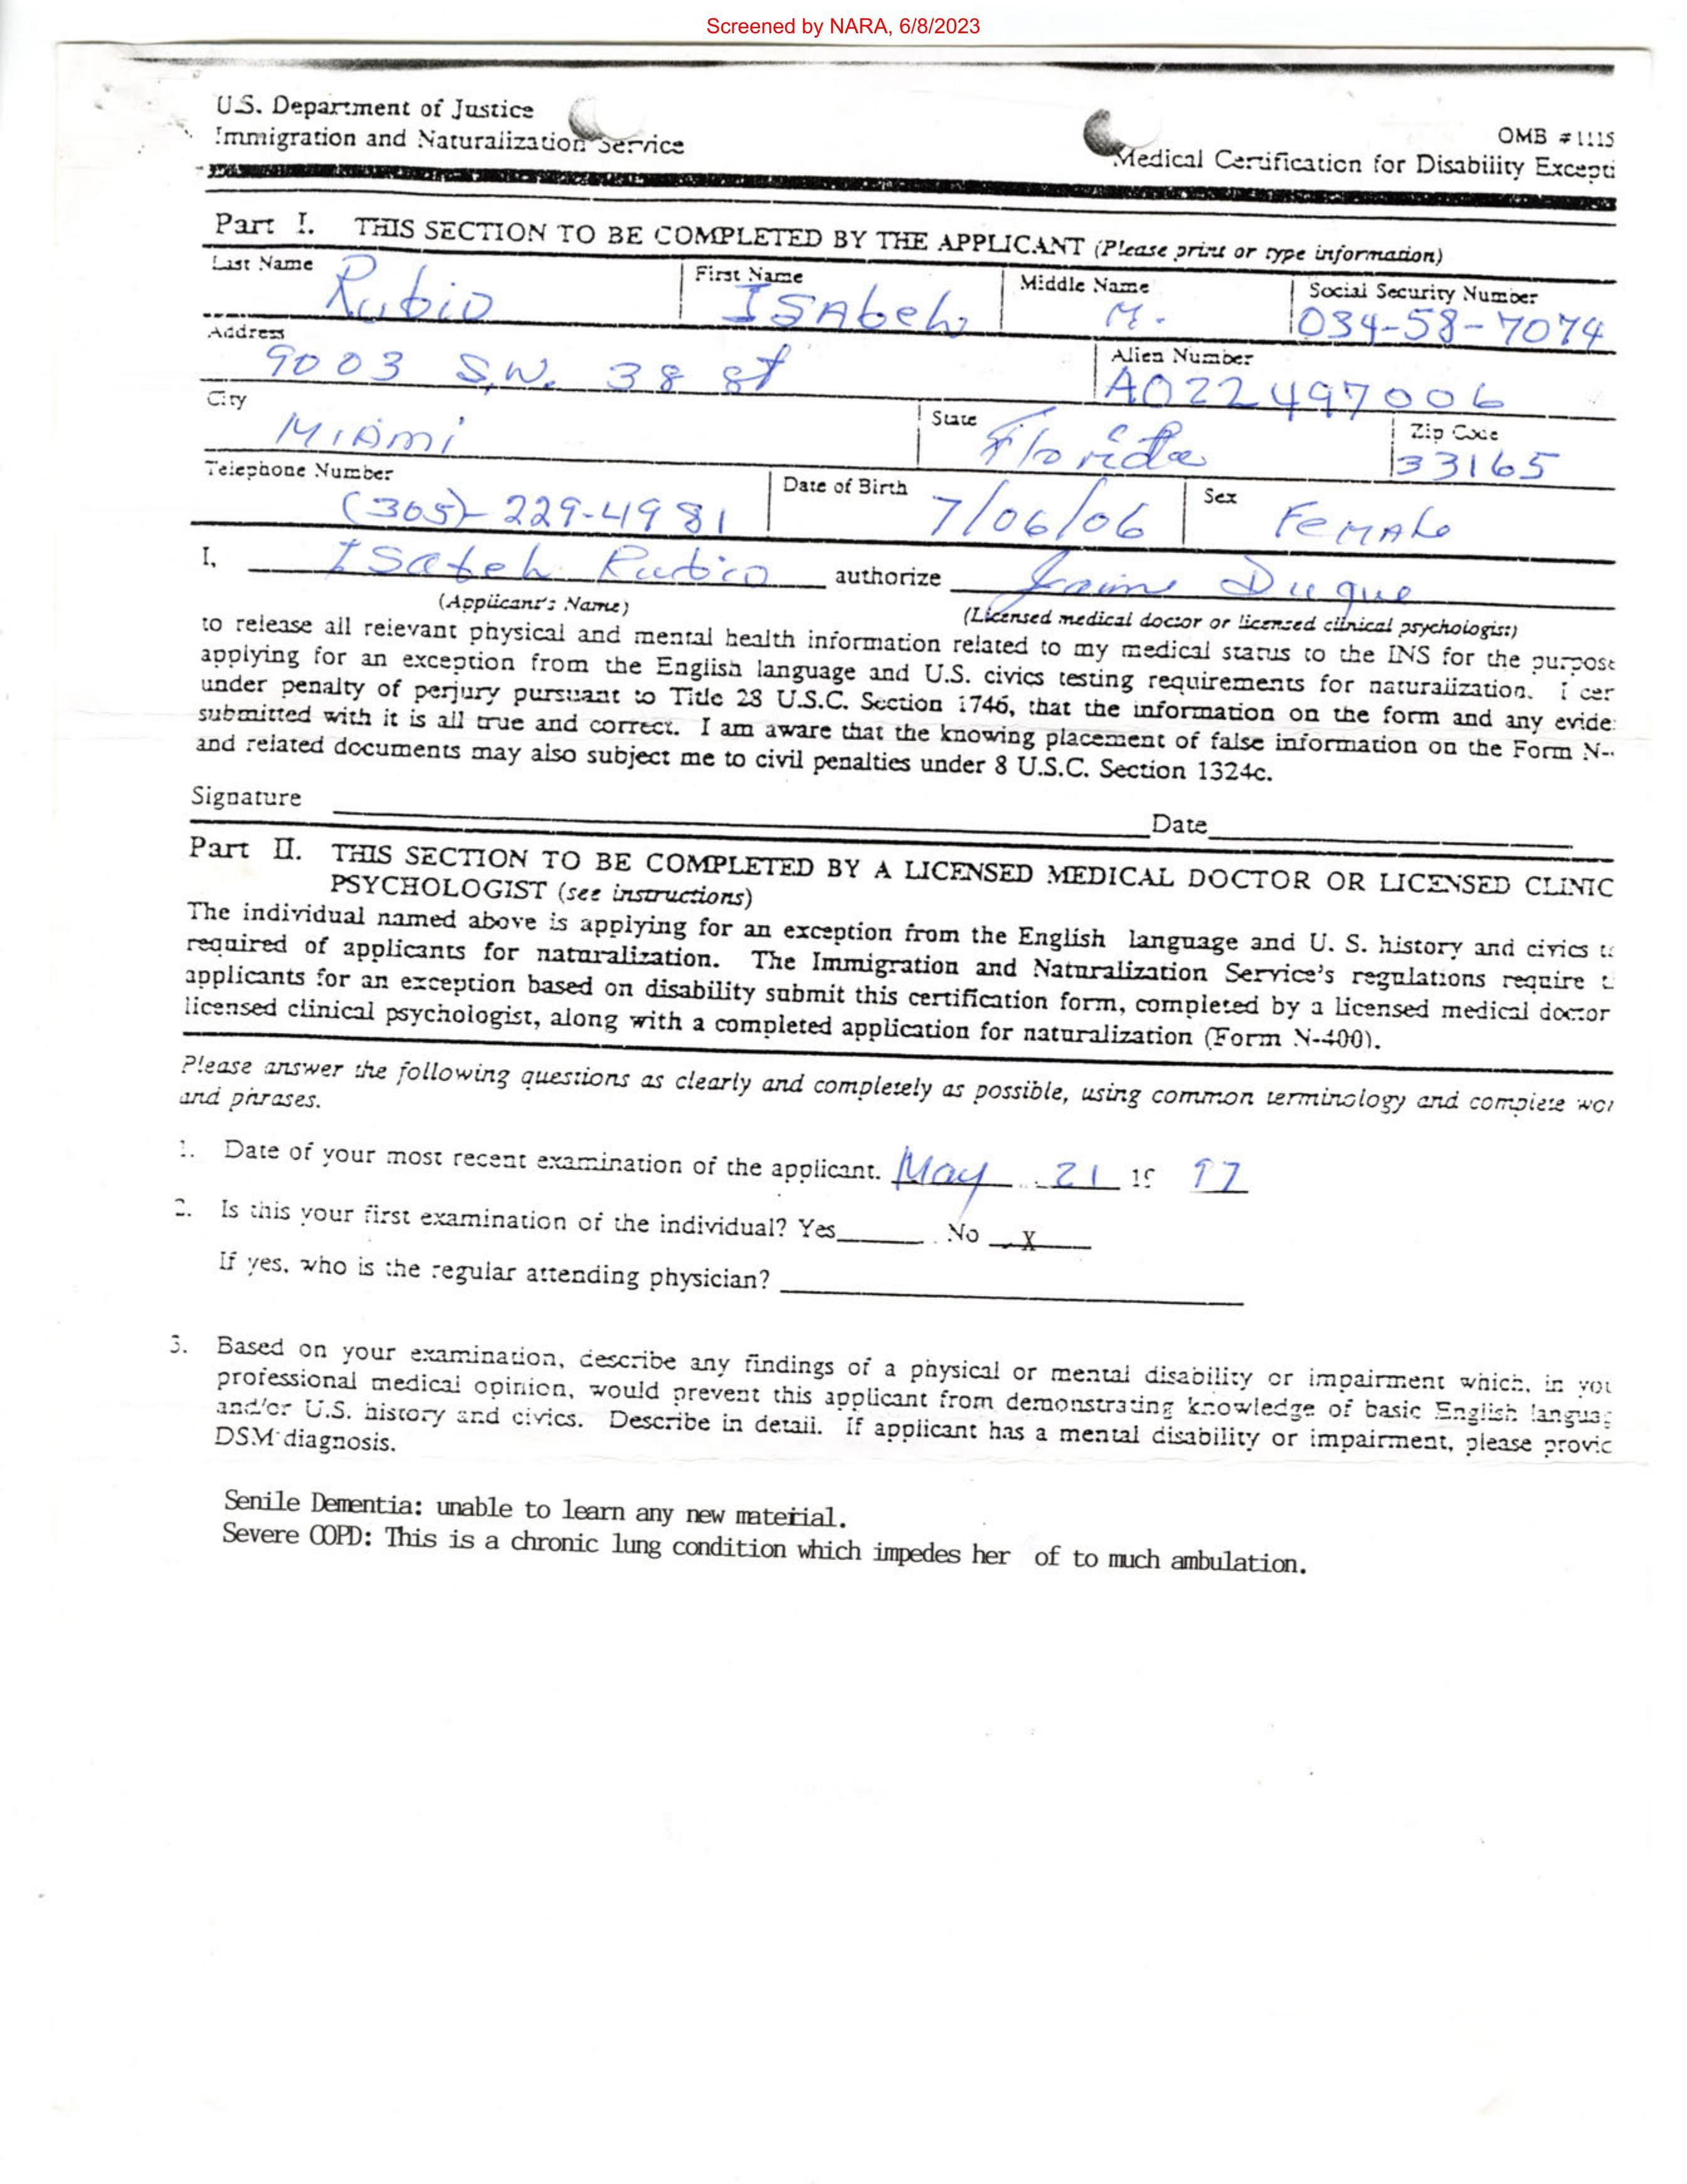 Screened by NARA, 6/8/2023
U.S. Department of Justice
Immigration and Naturalization Service
OMB #1115
Medical Certification for Disability Excepti
Part I. THIS SECTION TO BE COMPLETED BY THE APPLICANT (Please print or type information)
Last Name First Name Middle Name Social Security Number
Rubio Isabel M. 034-58-7074
Address Alien Number
9003 S.W. 38 st A022497006
City State Zip Code
Miami Florida 33165
Telephone Number Date of Birth Sex
(305)-229-4981 7/06/06 Female
I, Isabel Rubio authorize Jaime Duque
(Applicant's Name) (Licensed medical doctor or licensed clinical psychologist)
to release all relevant physical and mental health information related to my medical status to the INS for the purpose
applying for an exception from the English language and U.S. civics testing requirements for naturalization. I cer
under penalty of perjury pursuant to Title 28 U.S.C. Section 1746, that the information on the form and any evide
submitted with it is all true and correct. I am aware that the knowing placement of false information on the Form N-
and related documents may also subject me to civil penalties under 8 U.S.C. Section 1324c.
Signature Date
Part II. THIS SECTION TO BE COMPLETED BY A LICENSED MEDICAL DOCTOR OR LICENSED CLINIC
PSYCHOLOGIST (see instructions)
The individual named above is applying for an exception from the English language and U. S. history and civics t
required of applicants for naturalization. The Immigration and Naturalization Service's regulations require t
applicants for an exception based on disability submit this certification form, completed by a licensed medical doctor
licensed clinical psychologist, along with a completed application for naturalization (Form N-400).
Please answer the following questions as clearly and completely as possible, using common terminology and complete wor
and phrases.
1. Date of your most recent examination of the applicant. May 21 19 97
2. Is this your first examination of the individual? Yes No X
If yes, who is the regular attending physician?
3. Based on your examination, describe any findings of a physical or mental disability or impairment which, in you
professional medical opinion, would prevent this applicant from demonstrating knowledge of basic English languag
and/or U.S. history and civics. Describe in detail. If applicant has a mental disability or impairment, please provid
DSM diagnosis.
Senile Dementia: unable to learn any new material.
Severe COPD: This is a chronic lung condition which impedes her of to much ambulation.